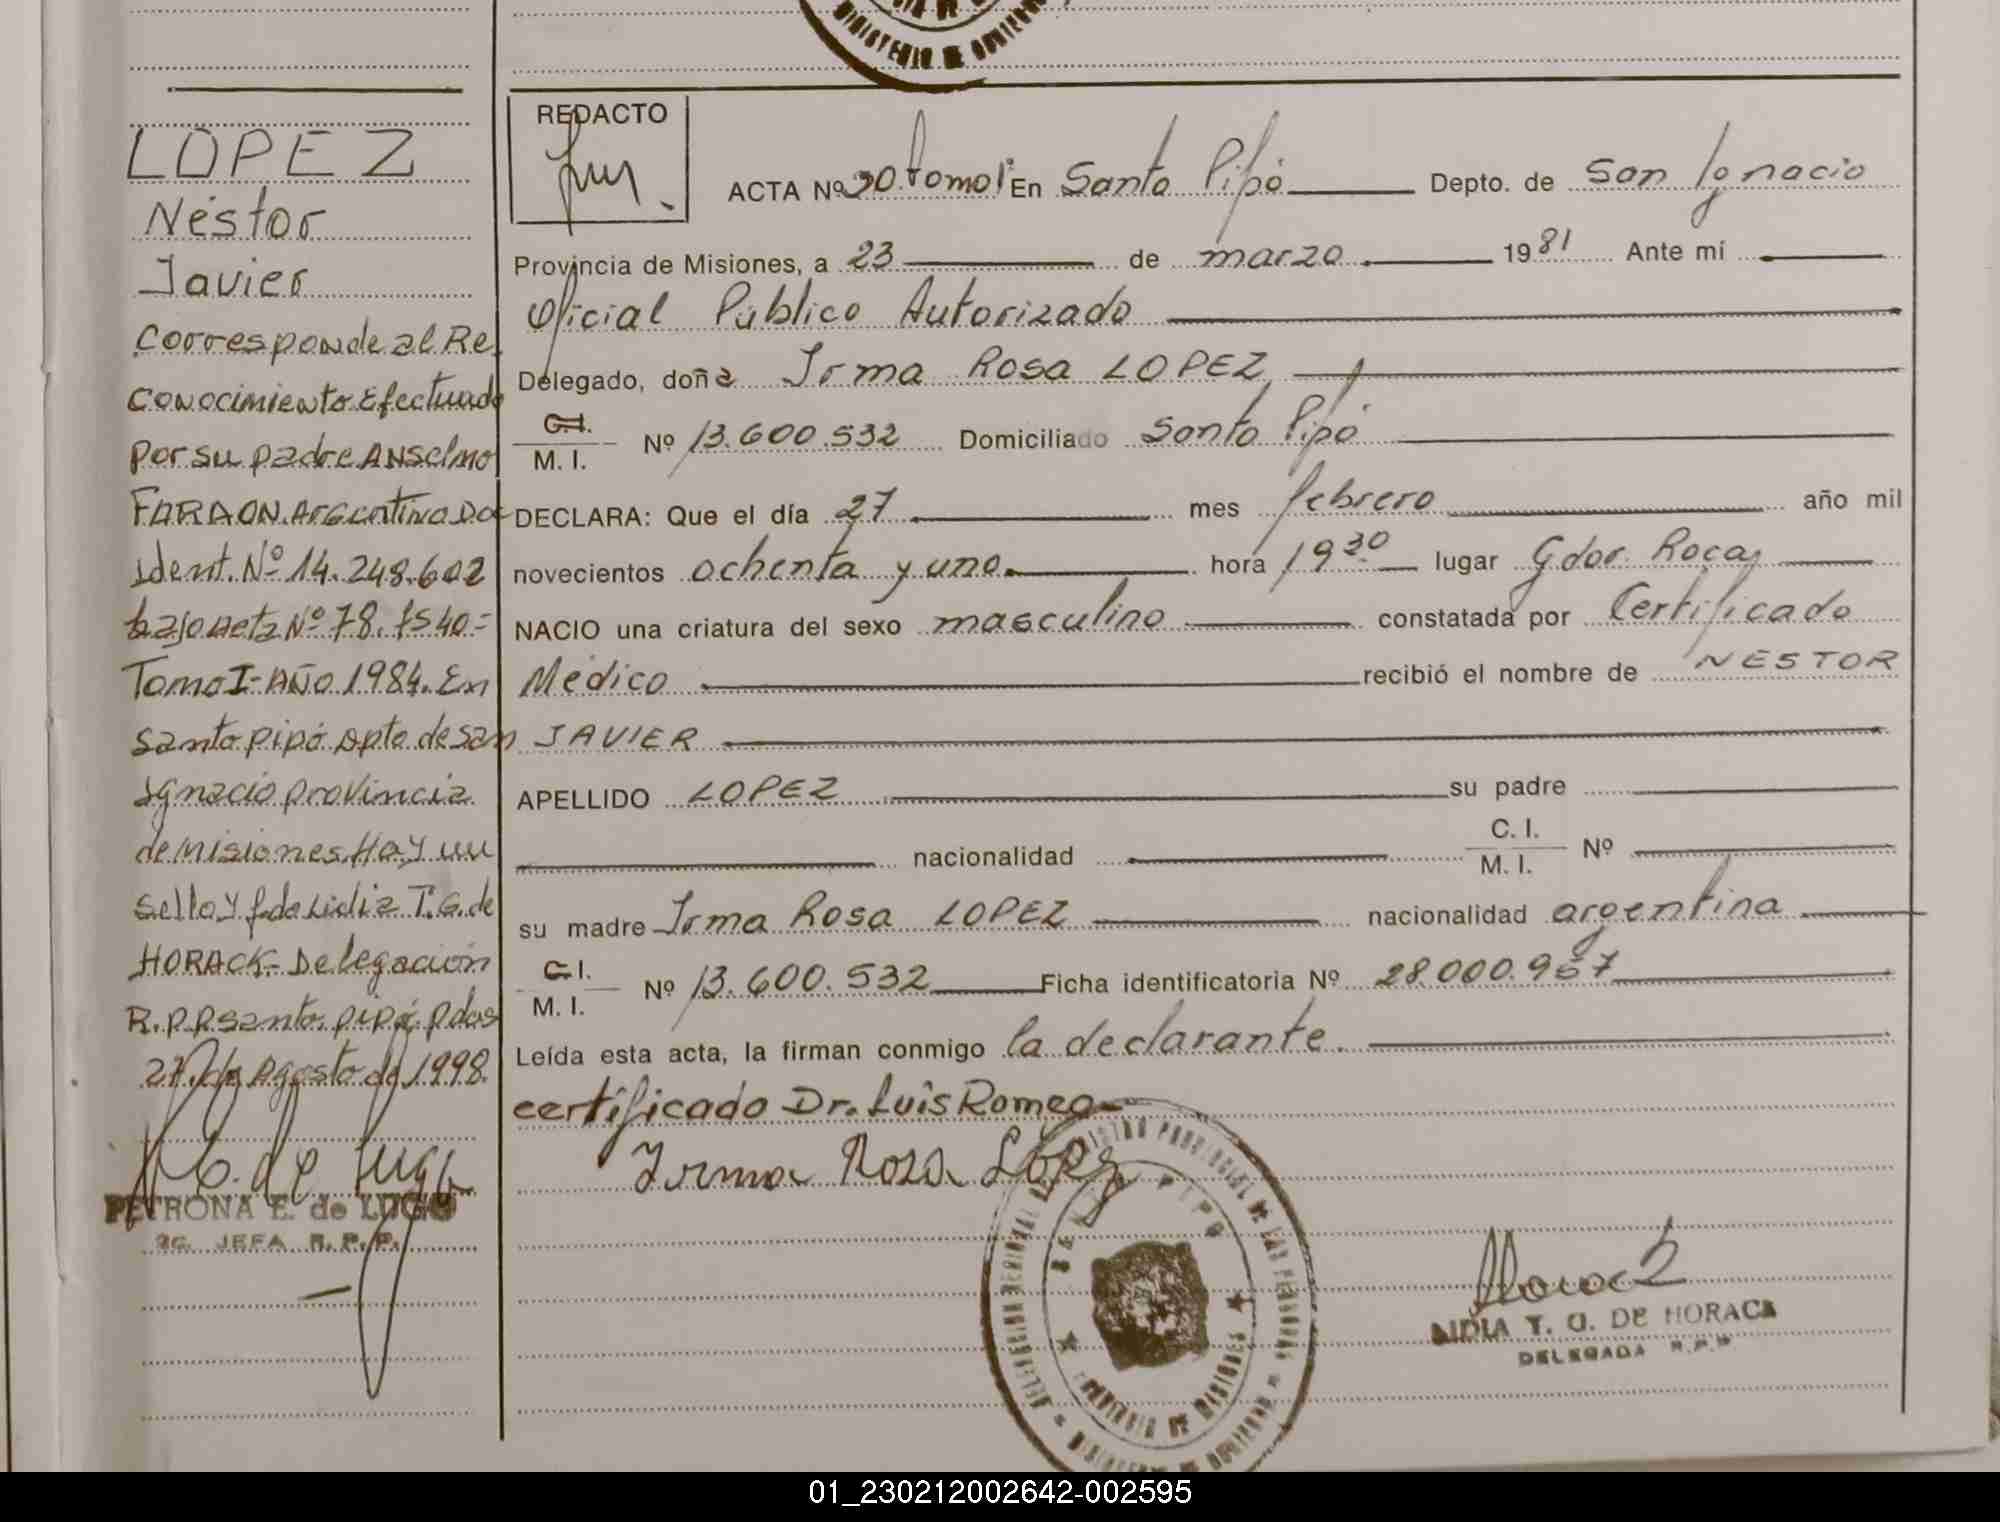 MINISTERIO DE GOBIERNO
LOPEZ
Néstor
Javier
Corresponde al Re
conocimiento Efectuado
Por su padre Anselmo
FARAON. Argentino Doc
Ident. Nº 14.248.602
bajo acta Nº 78. Fs 40=
Tomo I- AÑO 1984. En
Santo pipó Dpto de San
Ignacio provincia
de Misiones. Hay un
sello y f. de Lidia T. G. de
HORACK- Delegación
R.P.P Santo pipó pdas
27 de Agosto de 1998.
PETRONA E. de LUGO
JEFA R.P.P.
REDACTO
ACTA Nº 90. tomo I En Santo Pipó Depto. de San Ignacio
Provincia de Misiones, a 23 de marzo 1981 Ante mí
Oficial Público Autorizado
Delegado, doña Irma Rosa LOPEZ
C.I.
M. I. Nº 13.600.532 Domiciliado Santo Pipó
DECLARA: Que el día 27 mes febrero año mil
novecientos ochenta y uno hora 19 30 lugar Gdor. Roca
NACIO una criatura del sexo masculino constatada por Certificado
Médico recibió el nombre de NESTOR
JAVIER
APELLIDO LOPEZ su padre
nacionalidad C. I.
M. I. Nº
su madre Irma Rosa LOPEZ nacionalidad argentina
C.I.
M. I. Nº 13.600.532 Ficha identificatoria Nº 28.000.967
Leída esta acta, la firman conmigo la declarante.
certificado Dr. Luis Romeo
Irma Rosa López
REGISTRO PROVINCIAL DE LAS PERSONAS
PIPO
PROVINCIA DE MISIONES
MINISTERIO DE GOBIERNO
Horack
LIDIA T. G. DE HORACK
DELEGADA R.P.P.
01_230212002642-002595